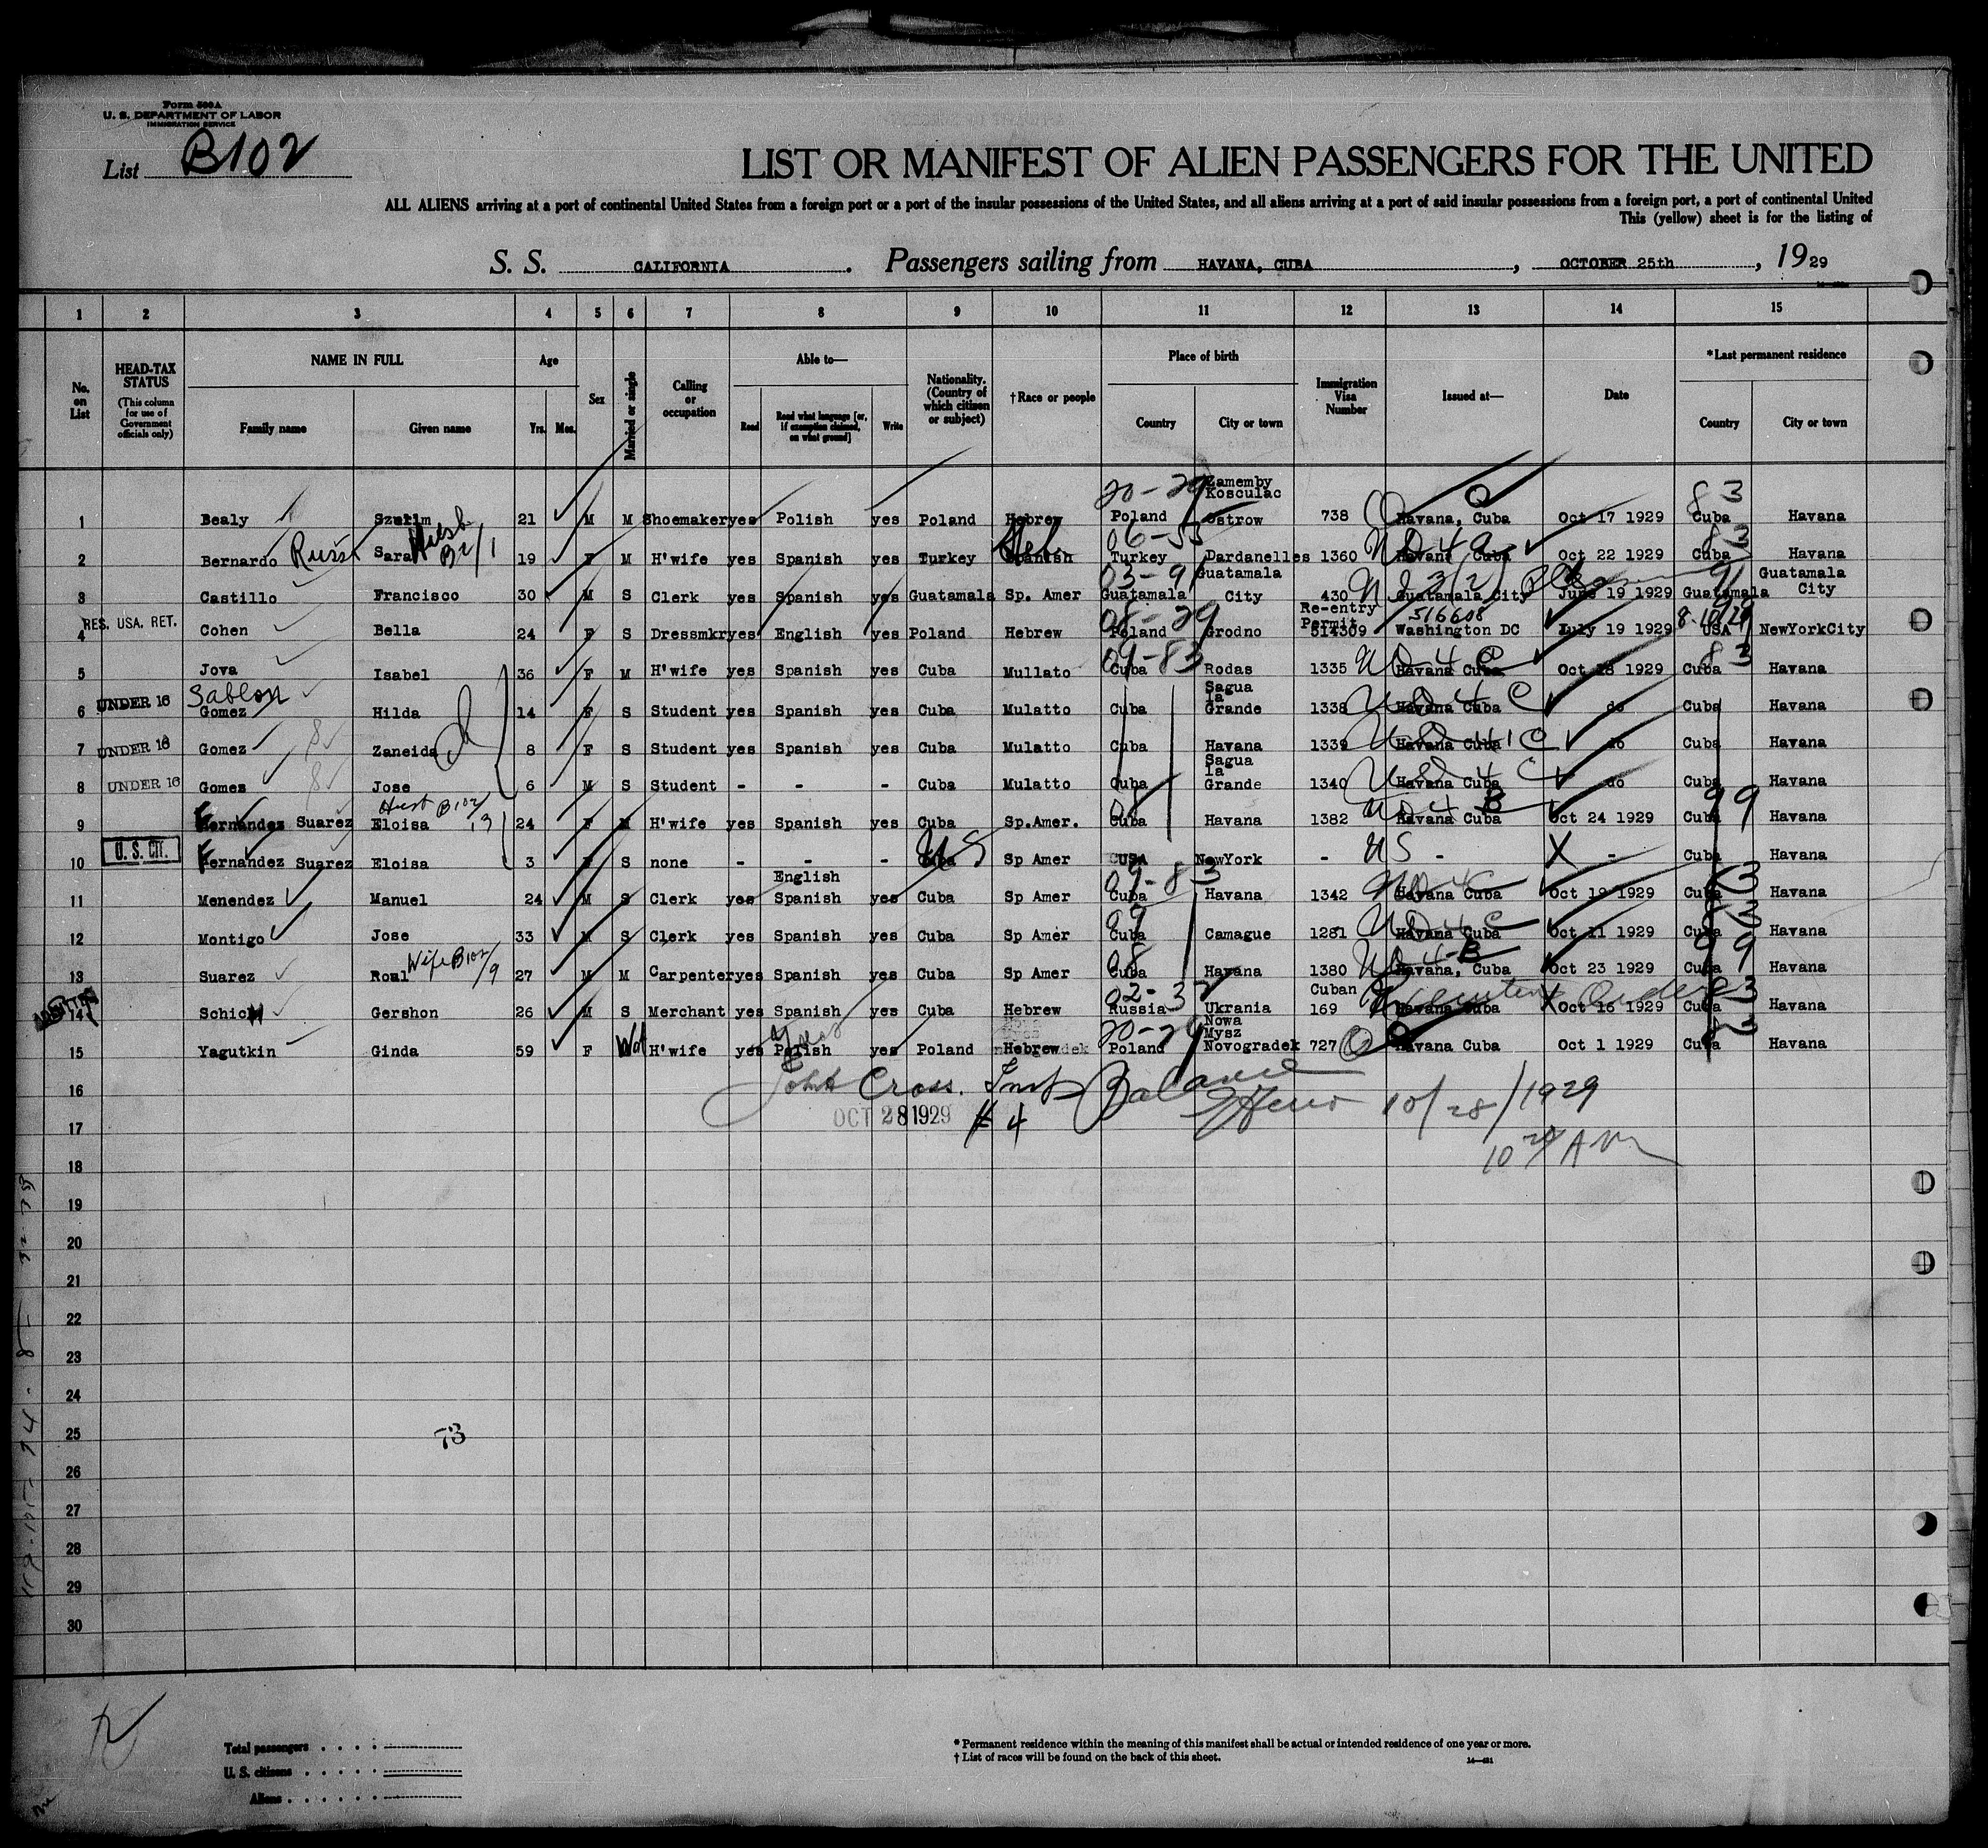 Form 500A
U. S. DEPARTMENT OF LABOR
IMMIGRATION SERVICE
List B102
LIST OR MANIFEST OF ALIEN PASSENGERS FOR THE UNITED
ALL ALIENS arriving at a port of continental United States from a foreign port or a port of the insular possessions of the United States, and all aliens arriving at a port of said insular possessions from a foreign port, a port of continental United
This (yellow) sheet is for the listing of
S. S. CALIFORNIA. Passengers sailing from HAVANA, CUBA, OCTOBER 25th, 1929
1 2 3 4 5 6 7 8 9 10 11 12 13 14 15
No. on List
HEAD-TAX STATUS (This column for use of Government officials only)
NAME IN FULL Family name Given name
Age Yrs. Mos.
Sex
Married or single
Calling or occupation
Able to— Read Read what language [or, if exemption claimed, on what ground] Write
Nationality. (Country of which citizen or subject)
†Race or people
Place of birth Country City or town
Immigration Visa Number
Issued at—
Date
*Last permanent residence Country City or town
20-29 Zamemby Kosculac 83
1 Bealy Szulim 21 M M Shoemaker yes Polish yes Poland Hebrew Poland Ostrow 738 Havana, Cuba Oct 17 1929 Cuba Havana
Husb B2/1 06-55 83
2 Bernardo Russi Sara 19 F M H'wife yes Spanish yes Turkey Heb Spanish Turkey Dardanelles 1360 Havana Cuba Oct 22 1929 Cuba Havana
03-91 Guatamala 91 Guatamala
3 Castillo Francisco 30 M S Clerk yes Spanish yes Guatamala Sp. Amer Guatamala City 430 Guatamala City June 19 1929 Guatamala City
RES. USA. RET. 08-29 Re-entry Permit 516608
4 Cohen Bella 24 F S Dressmkr yes English yes Poland Hebrew Poland Grodno 514309 Washington DC July 19 1929 USA NewYorkCity
09-83 83
5 Jova Isabel 36 F M H'wife yes Spanish yes Cuba Mullato Cuba Rodas 1335 Havana Cuba Oct 18 1929 Cuba Havana
UNDER 16 Sablon Sagua la
6 Gomez Hilda 14 F S Student yes Spanish yes Cuba Mulatto Cuba Grande 1338 Havana Cuba do Cuba Havana
UNDER 16
7 Gomez Zaneida 8 F S Student yes Spanish yes Cuba Mulatto Cuba Havana 1339 Havana Cuba do Cuba Havana
UNDER 16 Sagua la
8 Gomez Jose 6 M S Student - - - Cuba Mulatto Cuba Grande 1340 Havana Cuba do Cuba Havana
Husb B102/13 99
9 Fernandez Suarez Eloisa 24 F M H'wife yes Spanish yes Cuba Sp.Amer. Cuba Havana 1382 Havana Cuba Oct 24 1929 Cuba Havana
U. S. CIT. US
10 Fernandez Suarez Eloisa 3 F S none - - - Cuba Sp Amer USA NewYork - US - X - Cuba Havana
English 09-83 83
11 Menendez Manuel 24 M S Clerk yes Spanish yes Cuba Sp Amer Cuba Havana 1342 Havana Cuba Oct 19 1929 Cuba Havana
09 83
12 Montigo Jose 33 M S Clerk yes Spanish yes Cuba Sp Amer Cuba Camague 1281 Havana Cuba Oct 11 1929 Cuba Havana
Wife B102/9 08 99
13 Suarez Roul 27 M M Carpenter yes Spanish yes Cuba Sp Amer Cuba Havana 1380 Havana, Cuba Oct 23 1929 Cuba Havana
ADMITTED 02-3 Cuban 83
14 Schick Gershon 26 M S Merchant yes Spanish yes Cuba Hebrew Russia Ukrania 169 Havana Cuba X Oct 16 1929 Cuba Havana
20-29 Nowa Mysz 83
15 Yagutkin Ginda 59 F Wd H'wife yes Polish yes Poland Hebrew Poland Novogradek 727 Havana Cuba Oct 1 1929 Cuba Havana
16 John Cross. Inst Balance
10/28/1929
17 OCT 28 1929 # 4
10 AM
18
19
20
21
22
23
24
25
73
26
27
28
29
30
Total passengers
U. S. citizens
Aliens
* Permanent residence within the meaning of this manifest shall be actual or intended residence of one year or more.
† List of races will be found on the back of this sheet.